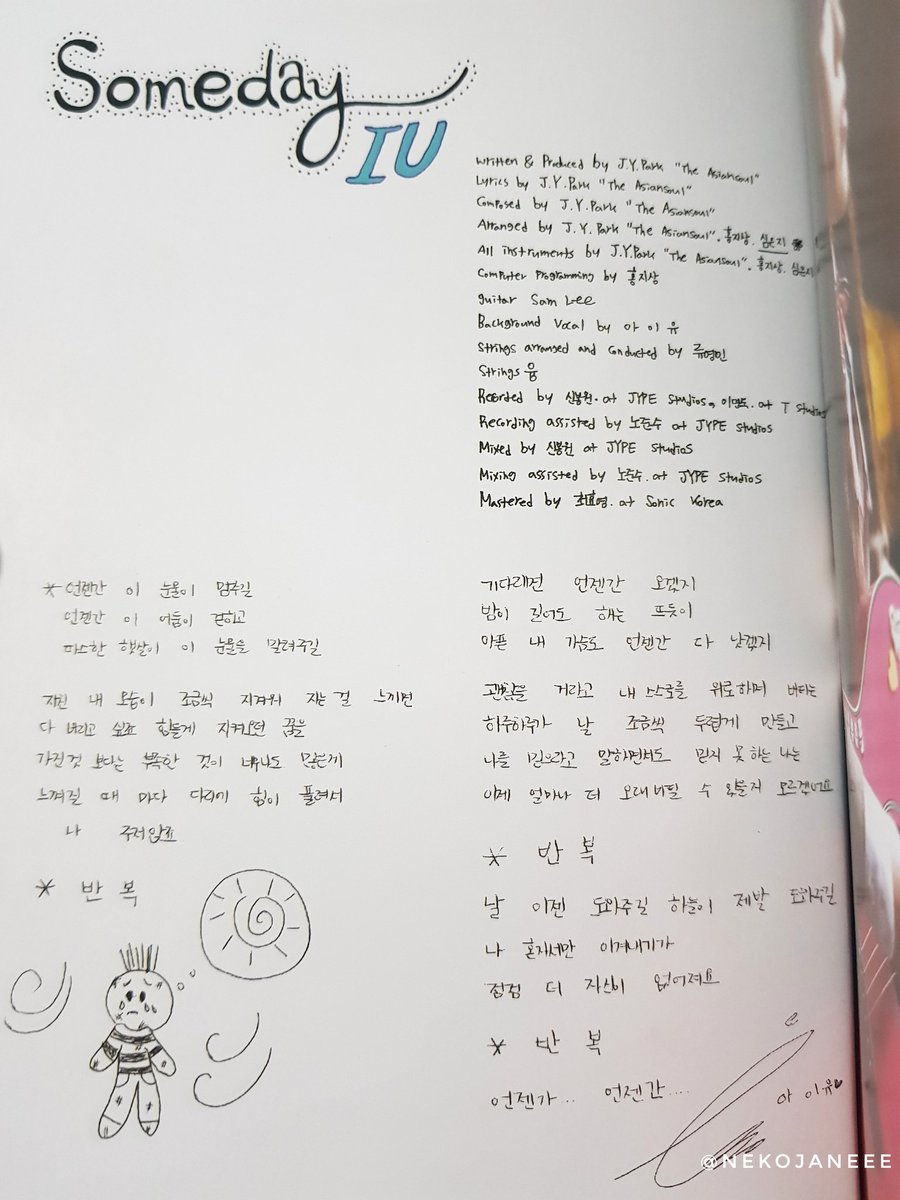 Someday
IU
Written & Produced by J.Y.Park "The Asiansoul"
Lyrics by J.Y.Park "The Asiansoul"
Composed by J.Y.Park "The Asiansoul"
Arranged by J.Y.Park "The Asiansoul". 홍지상. 심은지
All instruments by J.Y.Park "The Asiansoul". 홍지상. 심은지
Computer Programming by 홍지상
guitar Sam Lee
Background Vocal by 아이유
Strings arranged and conducted by 류영민
Strings 융
Recorded by 신봉원. at JYPE studios, 이명도. at T studios
Recording assisted by 노준수 at JYPE studios
Mixed by 신봉원 at JYPE studios
Mixing assisted by 노준수. at JYPE studios
Mastered by 최효영. at Sonic Korea
* 언젠간 이 눈물이 멈추길
언젠간 이 어둠이 걷히고
따스한 햇살이 이 눈물을 말려주길
지친 내 모습이 조금씩 지겨워 지는 걸 느끼면
다 버리고 싶죠 힘들게 지켜오던 꿈을
가진것 보다는 부족한 것이 너무나도 많은게
느껴질 때 마다 다리에 힘이 풀려서
나 주저앉죠
* 반복
기다리면 언젠간 오겠지
밤이 길어도 해는 뜨듯이
아픈 내 가슴도 언젠간 다 낫겠지
괜찮을 거라고 내 스스로를 위로하며 버티는
하루하루가 날 조금씩 두렵게 만들고
나를 믿으라고 말하면서도 믿지 못 하는 나는
이제 얼마나 더 오래 버틸 수 있을지 모르겠어요
* 반복
날 이젠 도와주길 하늘이 제발 도와주길
나 혼자서만 이겨내기가
점점 더 자신이 없어져요
* 반복
언젠가.. 언젠간....
아이유♥
@NEKOJANEEE